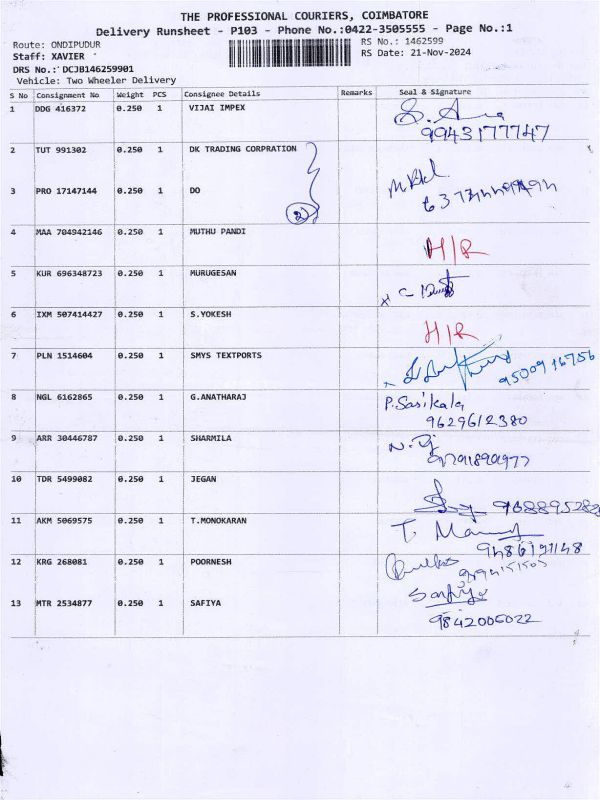 THE PROFESSIONAL COURIERS, COIMBATORE
Delivery Runsheet - P103 - Phone No.:0422-3505555 - Page No.:1
Route: ONDIPUDUR RS No.: 1462599
Staff: XAVIER RS Date: 21-Nov-2024
DRS No.: DCJB146259901
Vehicle: Two Wheeler Delivery
S No Consignment No Weight PCS Consignee Details Remarks Seal & Signature
1 DDG 416372 0.250 1 VIJAI IMPEX
9943177747
2 TUT 991302 0.250 1 DK TRADING CORPRATION
3 PRO 17147144 0.250 1 DO
2
4 MAA 704942146 0.250 1 MUTHU PANDI H/R
5 KUR 696348723 0.250 1 MURUGESAN
6 IXM 507414427 0.250 1 S.YOKESH H/R
7 PLN 1514604 0.250 1 SMYS TEXTPORTS
9500916756
8 NGL 6162865 0.250 1 G.ANATHARAJ P.Sasikala
9629612380
9 ARR 30446787 0.250 1 SHARMILA
10 TDR 5499082 0.250 1 JEGAN
11 AKM 5069575 0.250 1 T.MONOKARAN
12 KRG 268081 0.250 1 POORNESH
13 MTR 2534877 0.250 1 SAFIYA Safiya
9842006022